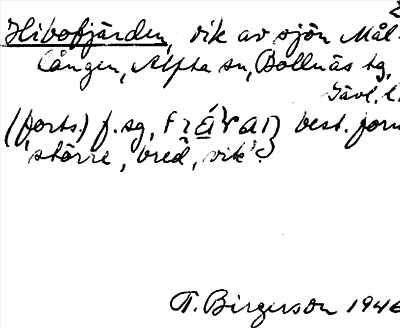 2
Hibofjärden, vik av sjön Mål-
Lången, Alfta sn, Bollnäs tg,
Gävl. l.
(forts.) f. sg, fiáran best. form
'större, bred, vik'.
T. Birgerson 1946